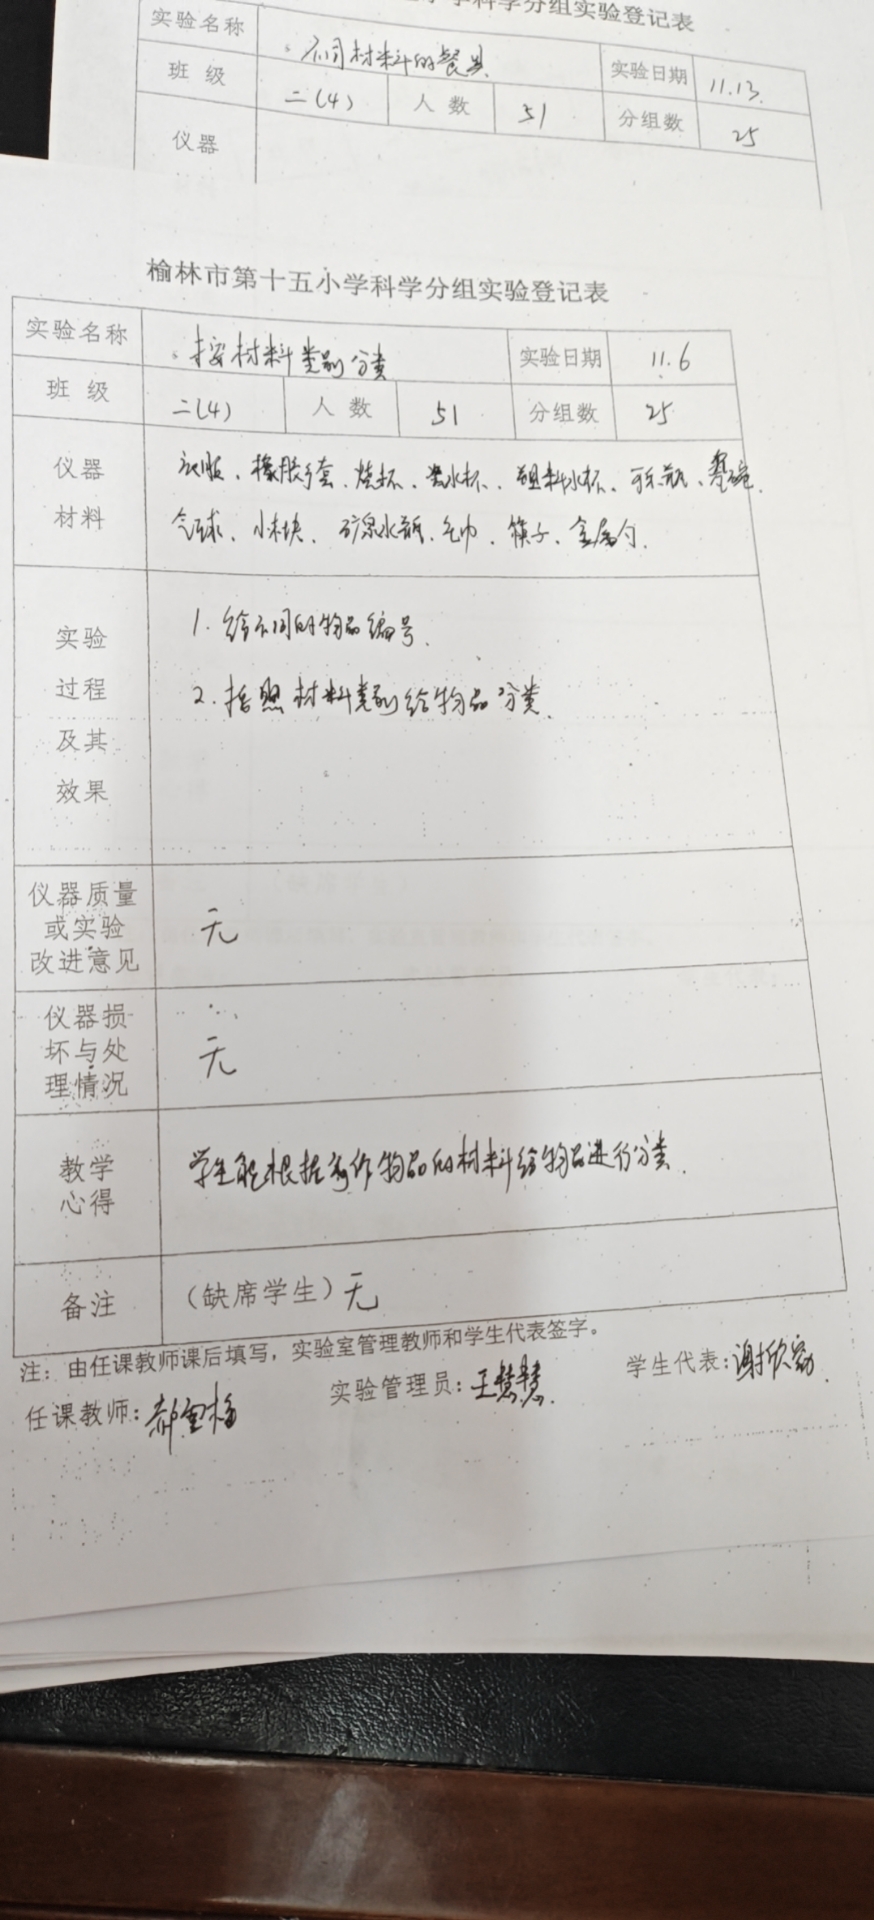 小学科学分组实验登记表
实验名称 不同材料的餐具 实验日期 11.13.
班 级 二(4) 人 数 51 分组数 25
仪器
榆林市第十五小学科学分组实验登记表
实验名称 按材料类别分类 实验日期 11.6
班 级 二(4) 人 数 51 分组数 25
仪器 衣服、橡胶手套、烧杯、水杯、塑料水杯、可乐瓶、
材料 气球、小木块、矿泉水瓶、毛巾、筷子、金属勺.
实验 1. 给不同的物品编号.
过程 2. 按照材料类别给物品分类.
及其
效果
仪器质量
或实验 无
改进意见
仪器损
坏与处 无
理情况
教学 学生能根据制作物品的材料给物品进行分类.
心得
备注 (缺席学生) 无
注：由任课教师课后填写，实验室管理教师和学生代表签字。
任课教师: 实验管理员: 王慧慧. 学生代表: 谢